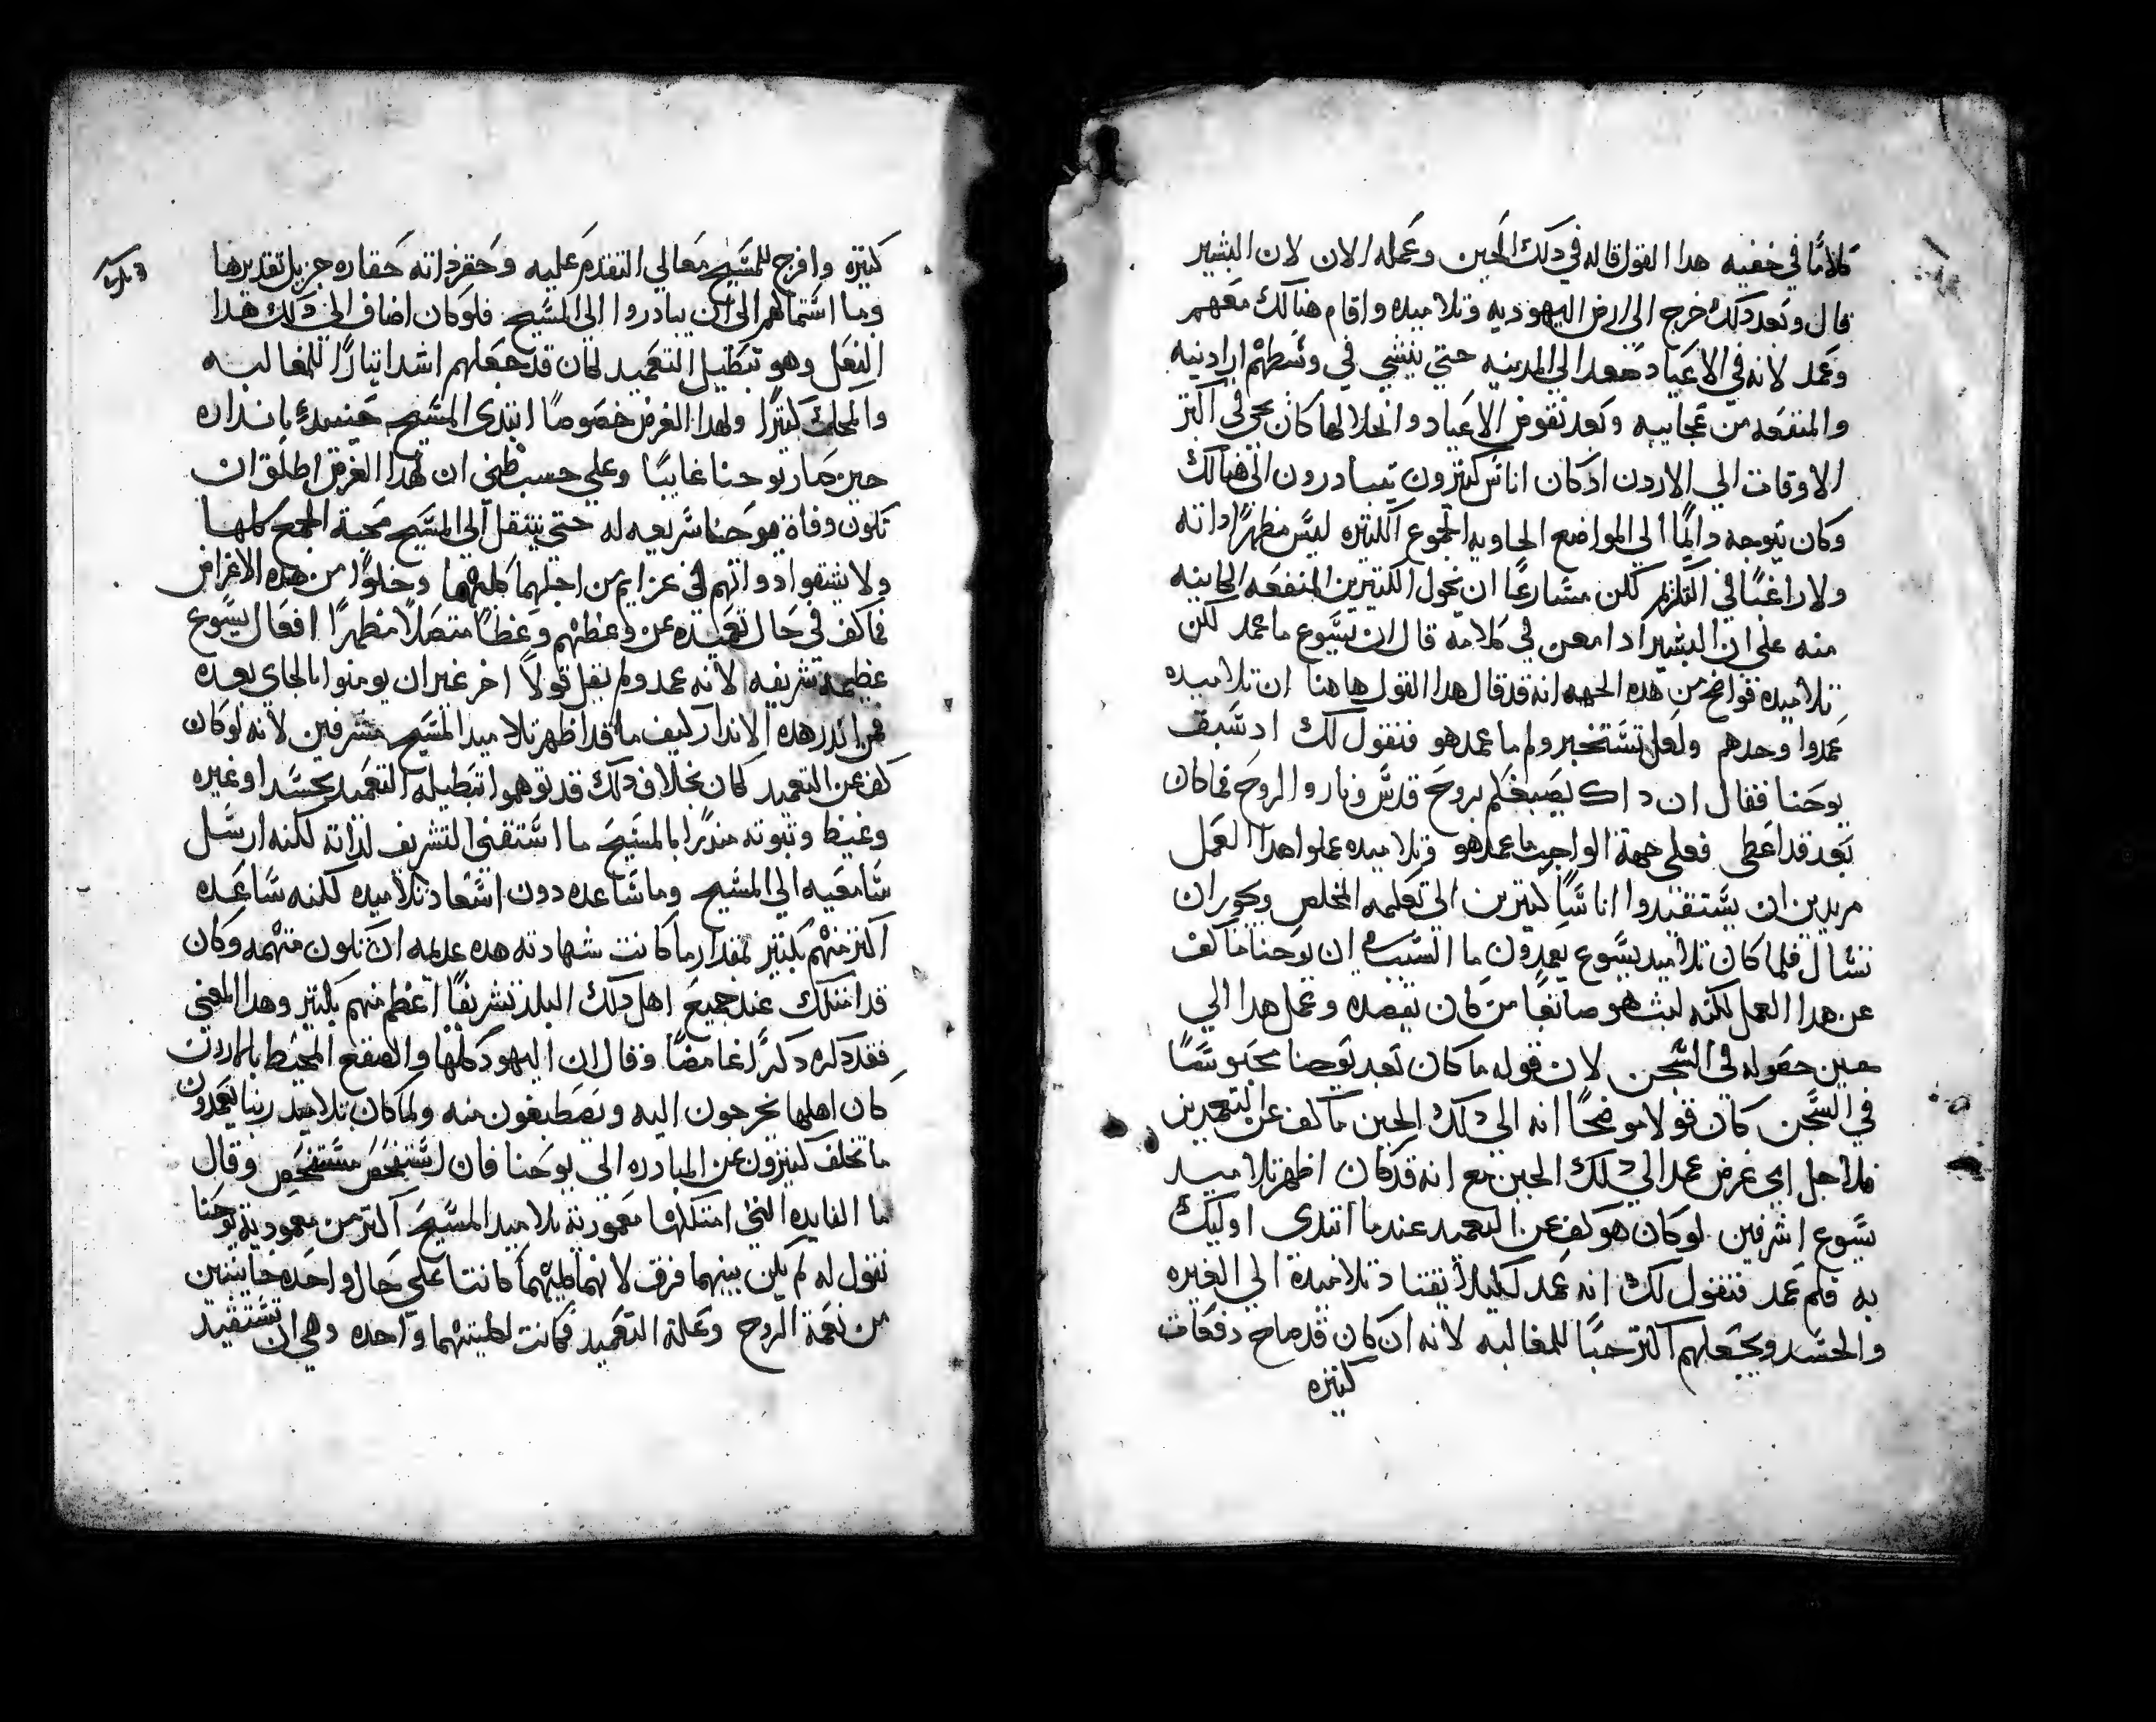 كلامًا في خفيه هدا القول قاله في دلك الحين وعمله الان لان البشير
قال وبعد دلك خرج الى ارض اليهوديه وتلاميده واقام هنالك معهم
وعمد لانه في الاعياد صعد الي المدينه حتي ينشي في وسطهم ارا دنيه
والمنفعه من عجايبه وبعد تقوض الاعياد وانحلالها كان يجي في اكتر
الاوقات الي الاردن ادكان اناس كتيرون يتبادرون الي هنالك
وكان يتوجه دايمًا الي المواضع الحاويه الجموع الكتيره ليس مظهرًا داته
ولا راغبًا في التكرم لكن مسارعًا ان يخول الكتيرين المنفعه الكاينه
منه علي ان البشير ادا معن في كلامه قال ان يسوع ما عمد لكن
تلاميده فواضح من هده الجهه انه قد قال هدا القول هاهنا ان تلاميده
عمدوا وحدهم ولعل تستخبر ولم ما عمد هو فنقول لك اد سبق
يوحنا فقال ان داك يصبغكم بروح قدس ونار والروح فما كان
بعد قد اعطي فعلي جهة الواجب ما عمد هو وتلاميده عملوا هدا العمل
مريدين ان يستقيدوا اناسًا كتيرين الي تعليمه المخلص ويجوز ان
نسال فلما كان تلاميد يسوع يعمدون ما السبب في ان يوحنا ما كف
عن هدا العمل لكنه لبث هو صابغًا من كان يقصده وعمل هدا الي
حين حصوله في السجن لان قوله ما كان بعد يوحنا محبوسًا
في السجن كان قولا موضحًا انه الي دلك الحين ما كف عن التعميد
فلاجل اي غرض عمد الي دلك الحين مع انه قد كان اظهر تلاميد
يسوع اشرفين لو كان هو كف عن التعميد عندما ابتدى اوليك
به فلم عمد فنقول لك انه عمد لكيلا يقتاد تلاميده الي الغيره
والحسد ويجعلهم اكتر حبًا للمغالبه لانه ان كان قد صاح دفعات
كتيره
كتيره وافرج للمسيح معالي التقدم عليه وحقر داته حقاره جزيل تقديرها
وما استمالهم الى ان يبادروا الى المسيح فلو كان اضاف الي دلك هدا
الفعل وهو تبطيل التعميد لكان قد جعلهم اشد ايتارًا للمغالبه
والمحك كتيرًا ولهدا الغرض خصوصًا ابتدى المسيح حينيد بانداره
حين صار يوحنا غايبًا وعلي حسب ظني ان لهدا الغرض اطلق ان
تكون وفاة يوحنا سريعه له حتي ينتقل الي المسيح محبة الجمع كلها
ولا ينشقوا دواتهم في عزايم من اجلهما كليهما وخلوًا من هده الاغراض
فما كف في حال تعميده عن وعظهم وعظًا متصلًا مظهرًا افعال يسوع
عظيمه شريفه لانه عمد ولم يقل قولًا اخر غير ان يومنوا بالجاي بعده
فمن اندر هده الاندار كيف ما قد اظهر تلاميد المسيح مشرفين لانه لو كان
كف عن التعميد كان بخلاف دلك قد توهموا تبطيله التعميد بحسدا وغيره
وغيظ وتبوته مندرًا بالمسيح ما استقنى التشريف لداته لكنه ارسل
سامعيه الي المسيح وما ساعده دون اسعاد تلاميده لكنه ساعده
اكتر منهم بكتير بمقدار ما كانت شهادته هده عديمه ان تكون متهمه وكان
قد امتلك عند جميع اهل دلك البلد تشريفًا اعظم منهم بكتير وهدا المعني
فقد دكره دكرًا غامضًا وقال ان اليهود كلها والصقع المحيط بالاردن
كان اهلها يخرجون اليه ويصطبغون منه ولما كان تلاميد ربنا يعمدون
ما تخلف كتيرون عن المبادره الي يوحنا فان استفحص مستفحص وقال
ما الفايده التي امتلكها معمودية تلاميد المسيح اكتر من معمودية يوحنا
نقول له لم يكن بينهما فرق لانهما كليهما كانتا علي حال واحده خاليتين
من نعمة الروح وعلة التعميد فكانت لكليتهما واحده وهي ان تستقيد